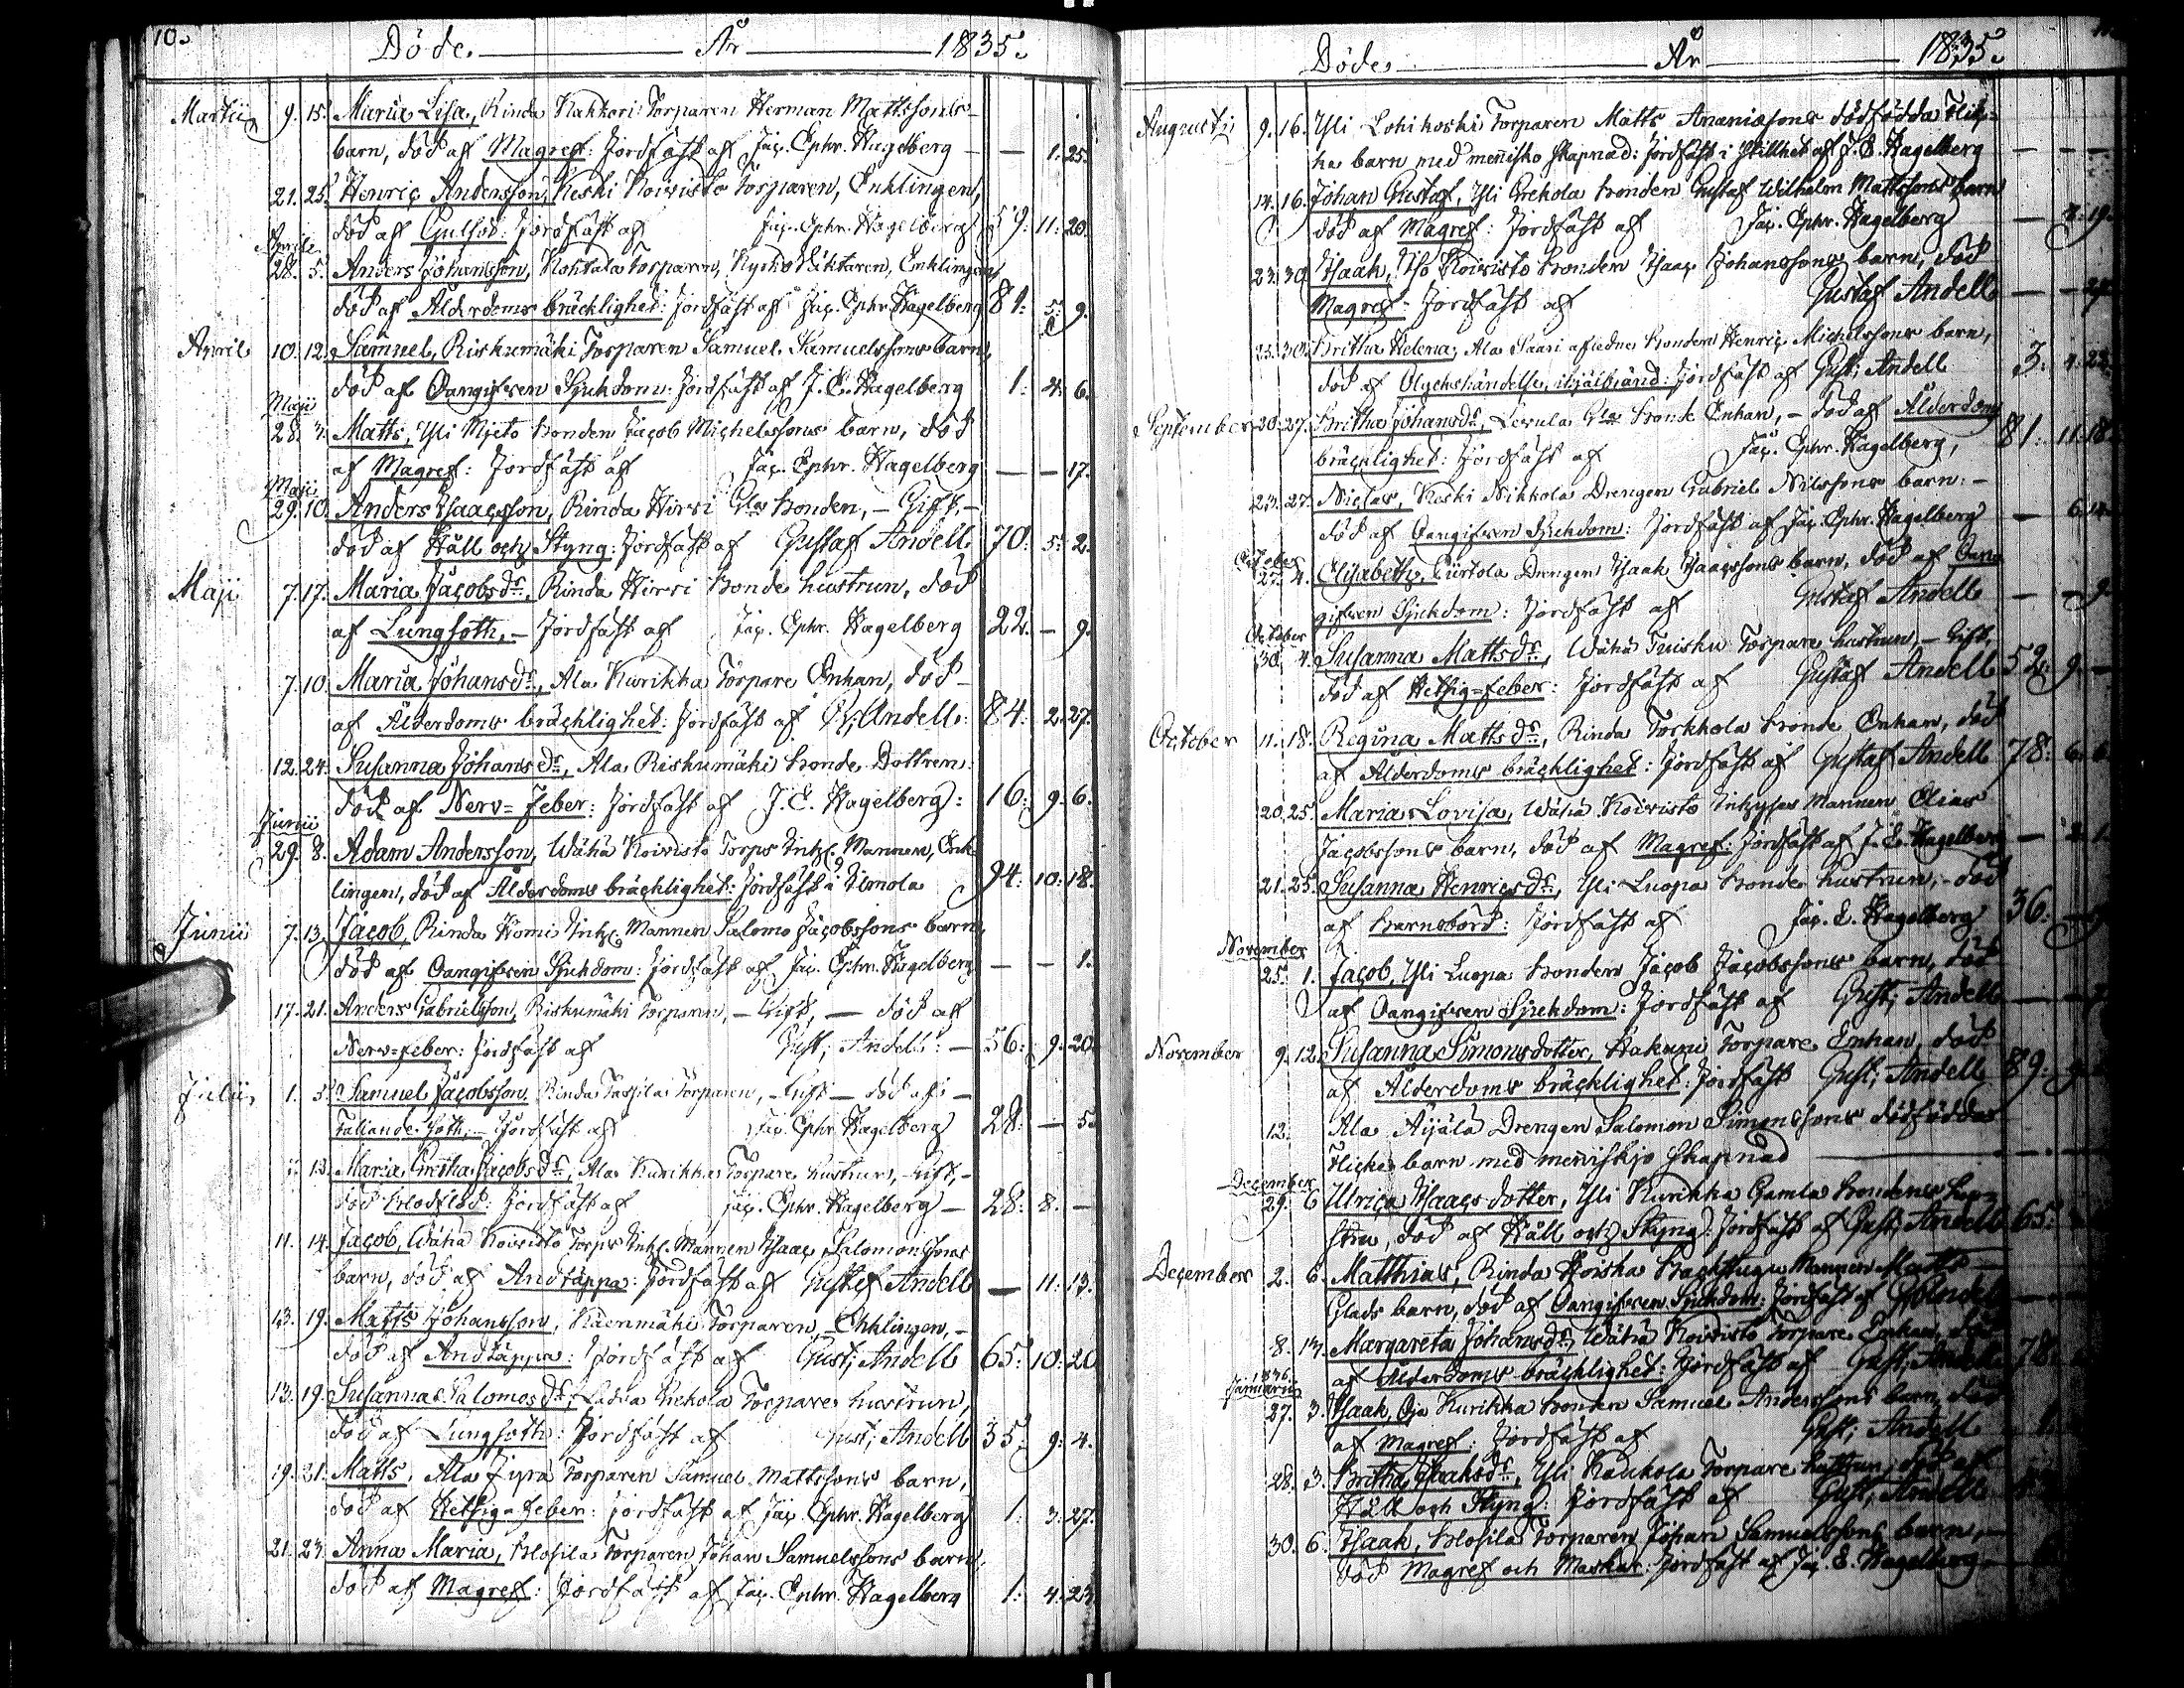 10.
Döde. År 1835.
Martii 9. 15. Maria Lisa, Rinda Kakkori Torparen Herman Mattssons
barn, död af Magref: Jordfäst af Jac. Ephr. Hagelberg — — 1. 25.
21. 25. Henric Andersson, Keski Koivisto Torparen, Enklingen,
död af Gulsot: Jordfäst af Jac. Ephr. Hagelberg 59. 11. 20.
Aprile
28. 5. Anders Johansson, Kohtala Torparen, Enklingen,
död af Ålderdoms bräcklighet: Jordfäst af Jac. Ephr. Hagelberg 81. 5. 9.
April 10. 12. Samuel, Riskumäki Torparen Samuel Samuelssons barn,
död af Oangifven Sjukdom: Jordfäst af J. E. Hagelberg 1. 4. 6.
Maji
28. 3. Matts, Yli Mjeto Bonden Jacob Michelssons barn, död
af Magref: Jordfäst af Jac. Ephr. Hagelberg — — 17.
Maji
29. 10. Anders Isaacsson, Rinda Hirsi Gla Bonden, — Gift, —
död af Håll och Styng: Jordfäst af Gustaf Andell 70. 5. 2.
Maji 7. 17. Maria Jacobsdr, Rinda Hirsi Bonde hustrun, död
af Lungsoth, — Jordfäst af Jac. Ephr. Hagelberg 22. — 9.
7. 10. Maria Johansdr, Ala Kurikka Torpare Enkan, död
af Ålderdoms bräcklighet: Jordfäst af G. Andell: 84. 2. 27.
12. 24. Susanna Johansdr, Ala Riskumäki Bonde Dottren
död af Nerv=Feber: Jordfäst af J. E. Hagelberg: 16. 9. 6.
Junii
29. 8. Adam Andersson, Wähä Koivisto Torps Inhs. Mannen, Enk
lingen, död af Ålderdoms bräcklighet: Jordfäst i Ilmola 94. 10. 18.
Junii 7. 13. Jacob, Rinda Komi Inhs. Mannen Salomo Jacobssons barn,
död af Oangifven Sjukdom: Jordfäst af Jac. Ephr. Hagelberg — — 1.
17. 21. Anders Gabrielsson, Riskumäki Torparen, — Gift, — död af
Nerv=feber: Jordfäst af Gust; Andell: — 56. 9. 20.
Julii 1. 5. Samuel Jacobsson, Rinda Torparen, — Gift — död af —
Fallande Soth, — Jordfäst af Jac. Ephr. Hagelberg 28. — 5.
7. 13. Maria Gretha Jacobsdr, Ala Kurikka Torpare hustrun, — Gift, —
död Blodflöd: Jordfäst af Jac. Ephr. Hagelberg — 28. 8. —
11. 14. Jacob, Wähä Koivisto Torps Inhs. Mannen Isaac Salomonssons
barn, död af Andtäppa: Jordfäst af Gustaf Andell — 11. 13.
13. 19. Matts Johansson, Käenmäki Torparen, — Enklingen, —
död af Andtäppa: Jordfäst af Gust; Andell 65. 10. 20
13. 19. Susanna Salomosdr, Grekola Torpare hustrun,
död af Lungsoth: Jordfäst af Gust; Andell 35. 9. 4.
19. 21. Matts, Ala Jyrä Torparen Samuel Mattssons barn,
död af Hetsig=feber: Jordfäst af Jac. Ephr. Hagelberg 1. 3. 27.
21. 23. Anna Maria, Blosila Torparen Johan Samuelssons barn,
död af Magref: Jordfäst af Jac. Ephr. Hagelberg 1. 4. 23.
Döde. År 1835.
Augusti 9. 16. Yli Lohikoski Torparen Matts Ananiæsons dödfödda Flik=
ka barn med mennisko skapnad: Jordfäst i stillhet af J. E. Hagelberg — — —
14. 16. Johan Gustaf, Yli Grekola Bonden Gustaf Wilhelm Mattssons barn
död af Magref: Jordfäst af Jac. Ephr. Hagelberg — 19.
23. 30. Isaak, Iso Koivisto Bonden Isaac Johanssons barn, död
Magref: Jordfäst af Gustaf Andell — —
25. 30. Britha Helena, Ala Saari aflednes Bonden Henric Michelssons barn,
död af Olyckshändelse, ihjälbränd: Jordfäst af Gust; Andell 3. 4. 23.
September 20. 27. Britha Johansdr, Levula Gla Bonde Enkan, — död af Ålderdoms
bräcklighet: Jordfäst af Jac. Ephr. Hagelberg, 81. 11. 18.
23. 27. Niclas, Koski Nikkola Drengen Gabriel Nilssons barn: —
död af Oangifven Sjukdom: Jordfäst af Jac. Ephr. Hagelberg — 6.
October
27. 4. Elisabeth, Piirtola Drengen Isaak Isaacssons barn, död af Oan
gifven Sjukdom: Jordfäst af Gustaf Andell — — 9.
October
30. 4. Susanna Mattsdr, Wähä Tuisku Torpare hustrun, — Gift,
död af Hetsig=feber: Jordfäst af Gustaf Andell 52. 9. —
October 11. 18. Regina Mattsdr, Rinda Torkkola Bonde Enkan, död
af Ålderdoms bräcklighet: Jordfäst af Gustaf Andell 78. 6. 6.
20. 25. Maria Lovisa, Wähä Koivisto Inhyses Mannen Elias
Jacobssons barn, död af Magref: Jordfäst af J. E. Hagelberg —
21. 25. Susanna Henricsdr, Yli Luopa Bonde hustrun, — död
af Barnsbörd: Jordfäst af Jac. E. Hagelberg 36.
November
25. 1. Jacob, Yli Luopa Bonden Jacob Jacobssons barn, död
af Oangifven Sjukdom: Jordfäst af Gust; Andell —
November 9. 12. Susanna Simonsdotter, Hakuni Torpare Enkan, död
af Ålderdoms bräcklighet: Jordfäst Gust; Andell 89. 9.
12. Ala Äijälä Drengen Salomon Simonssons dödföddas
Flicke barn med menniskjo skapnad —
December
29. 6 Ulrica Isaacs dotter, Yli Kurikka Gamla Bondens hu=
stru, död af Håll och Styng: Jordfäst af Gust; Andell 65.
December 2. 6. Matthias, Rinda Koiska Backstugu Mannen Matts
Glads barn, död af Oangifven Sjukdom: Jordfäst af G. Andell
8. 13. Margareta Johansdr, Wähä Koivisto Torpare Enkan, död
af Ålderdoms bräcklighet: Jordfäst af Gust; Andell 78.
1836.
Januarii
27. 3. Isaak, Oja Kurikka Bonden Samuel Anderssons barn, död
af Magref: Jordfäst af Gust; Andell
28. 3. Britha Isaaksdr, Yli Kaukola Torpare hustrun, död af
Håll och Styng: Jordfäst af Gust; Andell
30. 6. Isaak, Blosila Torparen Johan Samuelssons barn, —
död Magref och Maskar: Jordfäst af Jac. E. Hagelberg